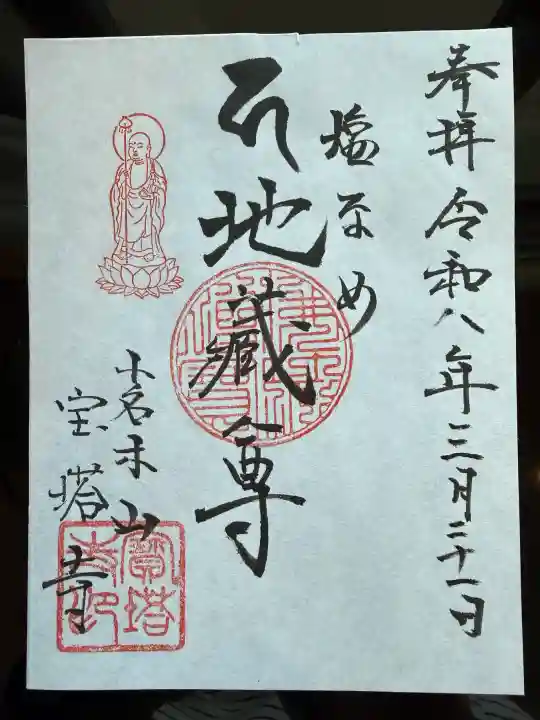 奉拝 令和八年三月二十一日
塩なめ
石地蔵尊
小名木山
宝塔寺
寶塔寺印